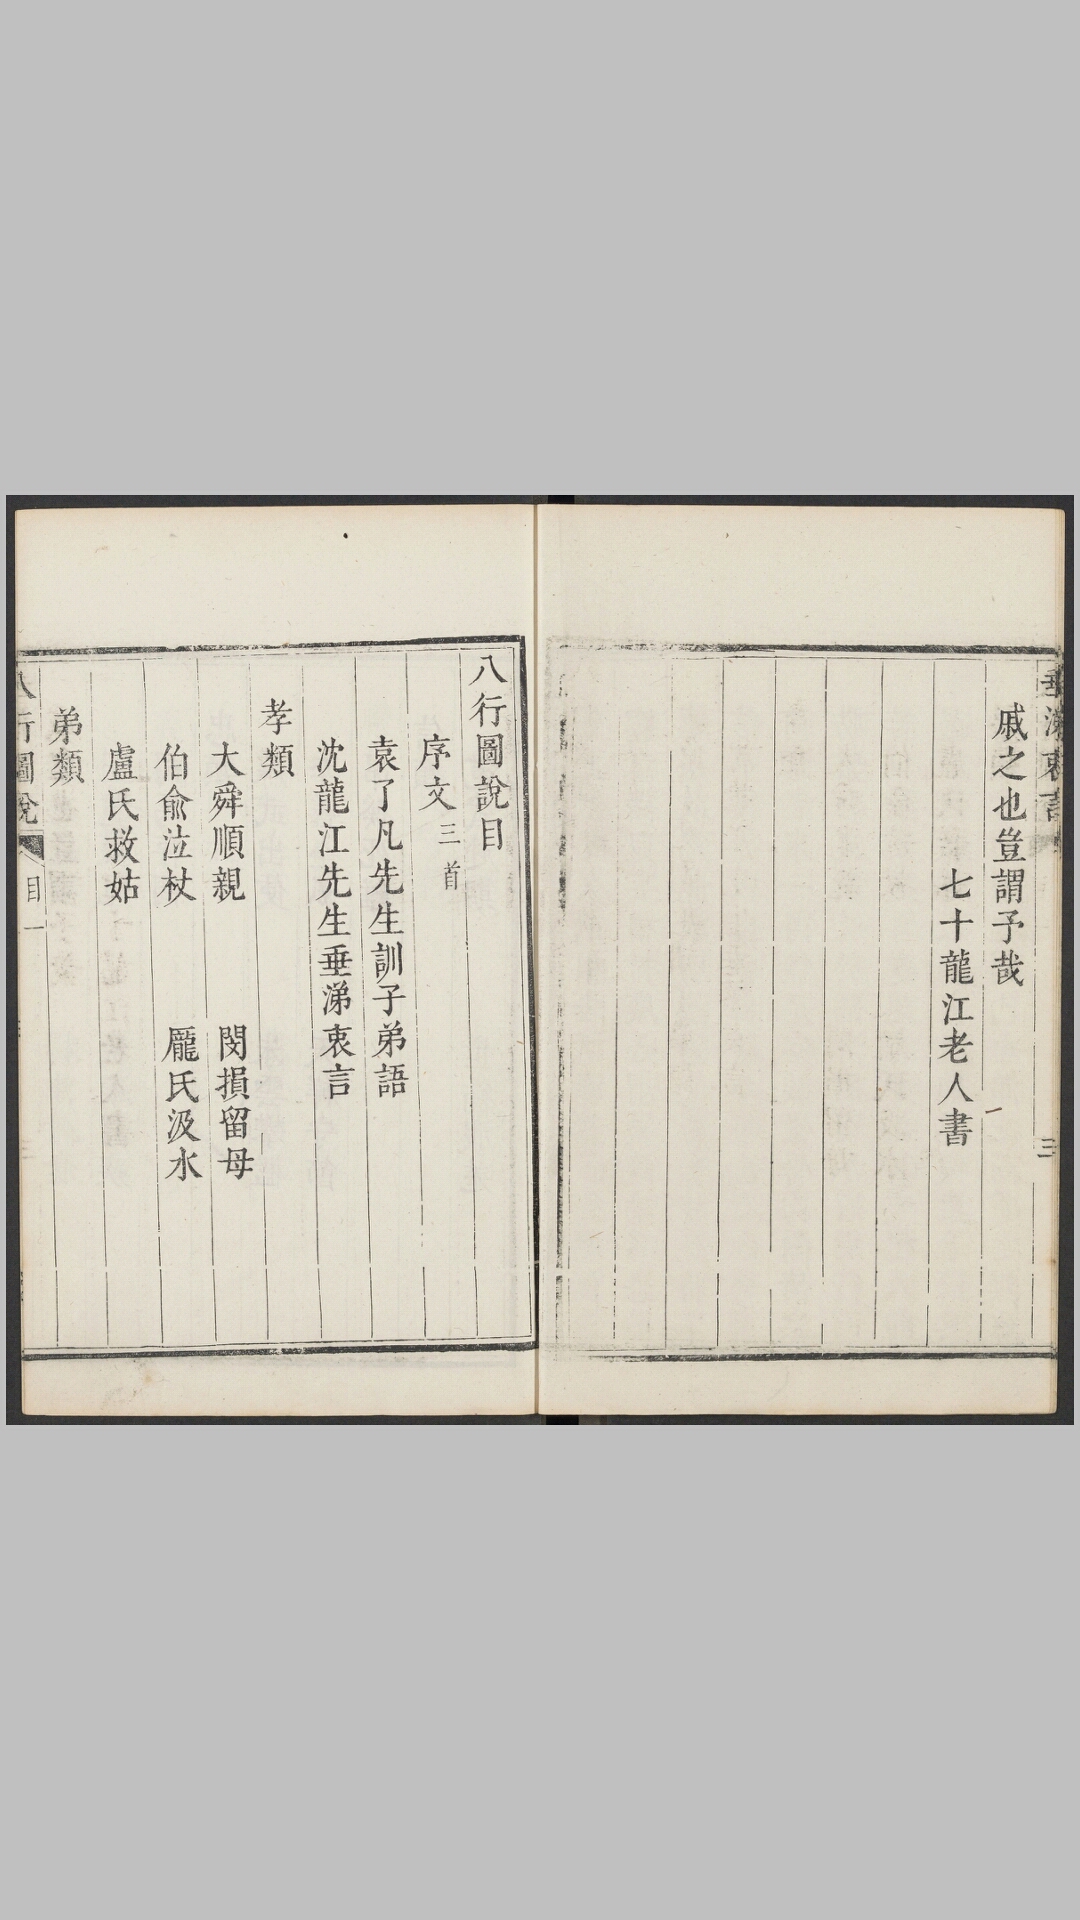 垂涕衷言
三
戚之也豈謂予哉
七十龍江老人書
八行圖說目
序文三首
袁了凡先生訓子弟語
沈龍江先生垂涕衷言
孝類
大舜順親 閔損留母
伯俞泣杖 龐氏汲水
盧氏救姑
弟類
八行圖說 目 一